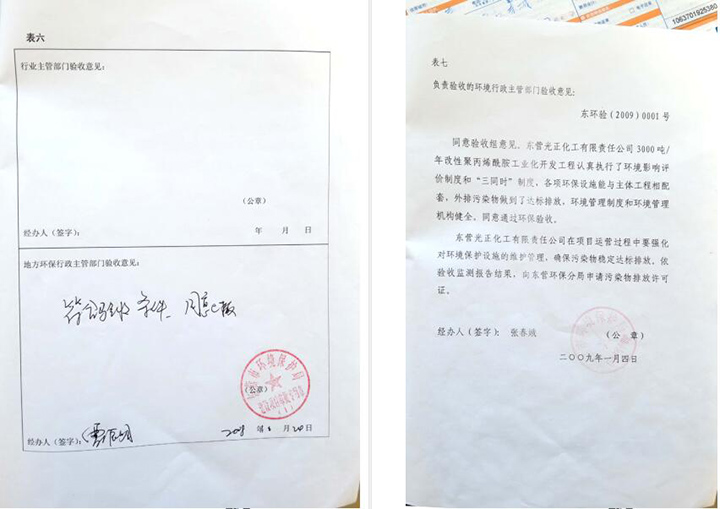 表六
行业主管部门验收意见：
（公章）
经办人（签字）： 年 月 日
地方环保行政主管部门验收意见：
符合验收条件、同意上报
（公章）
经办人（签字）： 月 日
表七
负责验收的环境行政主管部门验收意见：
东环验（2009）0001 号
同意验收组意见。东营光正化工有限责任公司 3000 吨/
年改性聚丙烯酰胺工业化开发工程认真执行了环境影响评
价制度和“三同时”制度，各项环保设施能与主体工程相配
套，外排污染物做到了达标排放，环境管理制度和环境管理
机构健全、同意通过环保验收。
东营光正化工有限责任公司在项目运营过程中要强化
对环境保护设施的维护管理，确保污染物稳定达标排放。依
验收监测报告结果，向东营环保分局申请污染物排放许可
证。
经办人（签字）： 张春 （公 章）
二〇〇九年一月四日